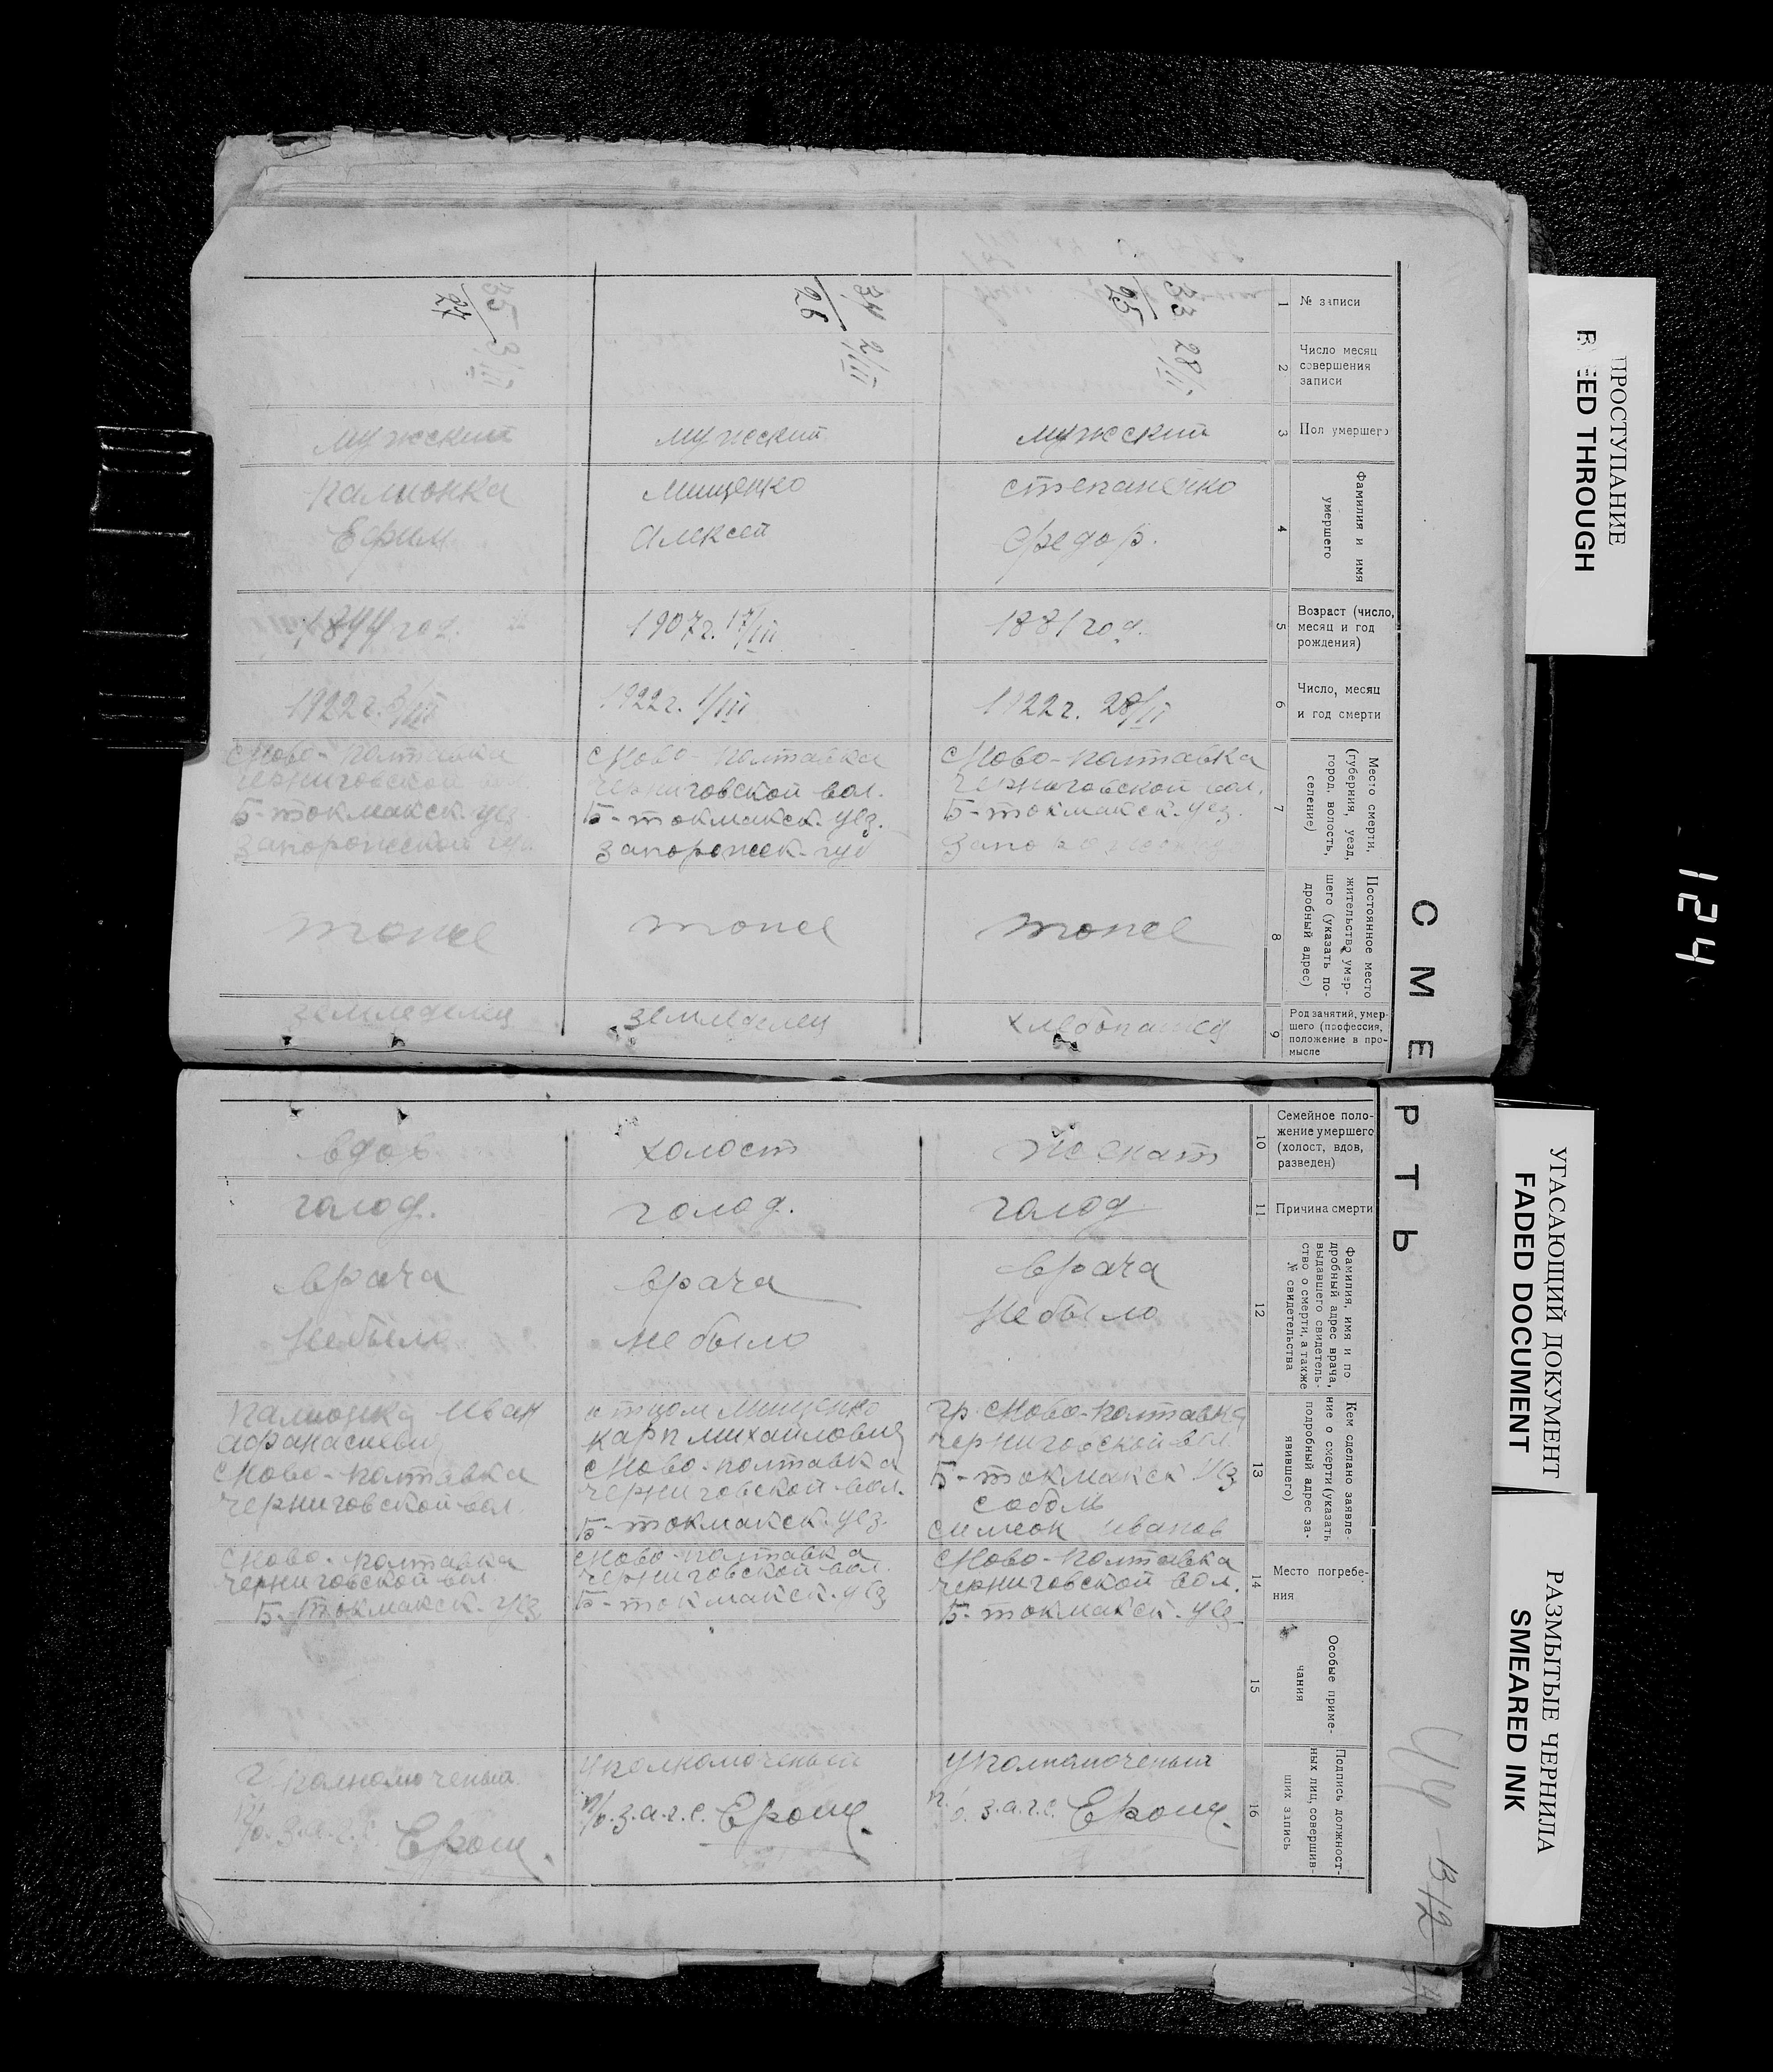 СМЕРТЬ
1
№ записи
33
25
34
26
35
27
2
Число месяц
совершения
записи
28/II
2/III
3/III
3
Пол умершего
мужский
мужский
мужский
4
Фамилия и имя
умершего
степаненко
Федор.
Мищенко
Алексей
Ефим
5
Возраст (число,
месяц и год
рождения)
1881 год.
1907 г. 17/III
6
Число, месяц
и год смерти
1922 г. 28/II
1922 г. 1/III
1922 г. 3/III
7
Место смерти,
(губерния, уезд,
город, волость,
селение)
с Ново-полтавка
черниговской вол.
Б-токмакск. уез.
запорожск
с Ново-полтавка
черниговской вол.
Б-токмакск. уез.
запорожск-губ
с Ново-полтавка
черниговской вол.
Б-токмакск. уез
запорожской губ.
8
Постоянное место
жительства умер-
шего (указать по-
дробный адрес)
тоже
тоже
тоже
9
Род занятий, умер-
шего (профессия,
положение в про-
мысле
хлебопашец
земледелец
земледелец
10
Семейное поло-
жение умершего
(холост, вдов,
разведен)
Жеснат
холост
вдов
11
Причина смерти
голод
голод.
голод.
12
Фамилия, имя и по
дробный адрес врача,
выдавшего свидетель-
ство о смерти, а также
№ свидетельства
врача
Не было
врача
не было
врача
не было
13
Кем сделано заявле-
ние о смерти (указать
подробный адрес за-
явившего)
гр. с Ново-полтавка
черниговской вол.
Б-токмакск уез
соболь
симеон иванов
отцом Мищенко
карп михайлович
с Ново-полтавка
черниговской вол.
Б-токмакск. уез.
Иван
афанасиевич
с Ново-полтавка
черниговской вол
14
Место погребе-
ния
с Ново-полтавка
черниговской вол.
Б-токмакск. уез
с Ново-полтавка
черниговской вол.
Б-токмакск. уез
с Ново-полтавка
черниговской вол
Б-токмакск. уез
15
Особые приме-
чания
16
Подпись должност-
ных лиц, совершив-
ших запись
уполномоченый
п/о. з.а.г.с. Ерощ.
уполномоченый
п/о. з.а.г.с. Ерощ.
уполномоченый
п/о. з.а.г.с. Ерощ.
ПРОСТУПАНИЕ
BLEED THROUGH
124
УГАСАЮЩИЙ ДОКУМЕНТ
FADED DOCUMENT
РАЗМЫТЫЕ ЧЕРНИЛА
SMEARED INK